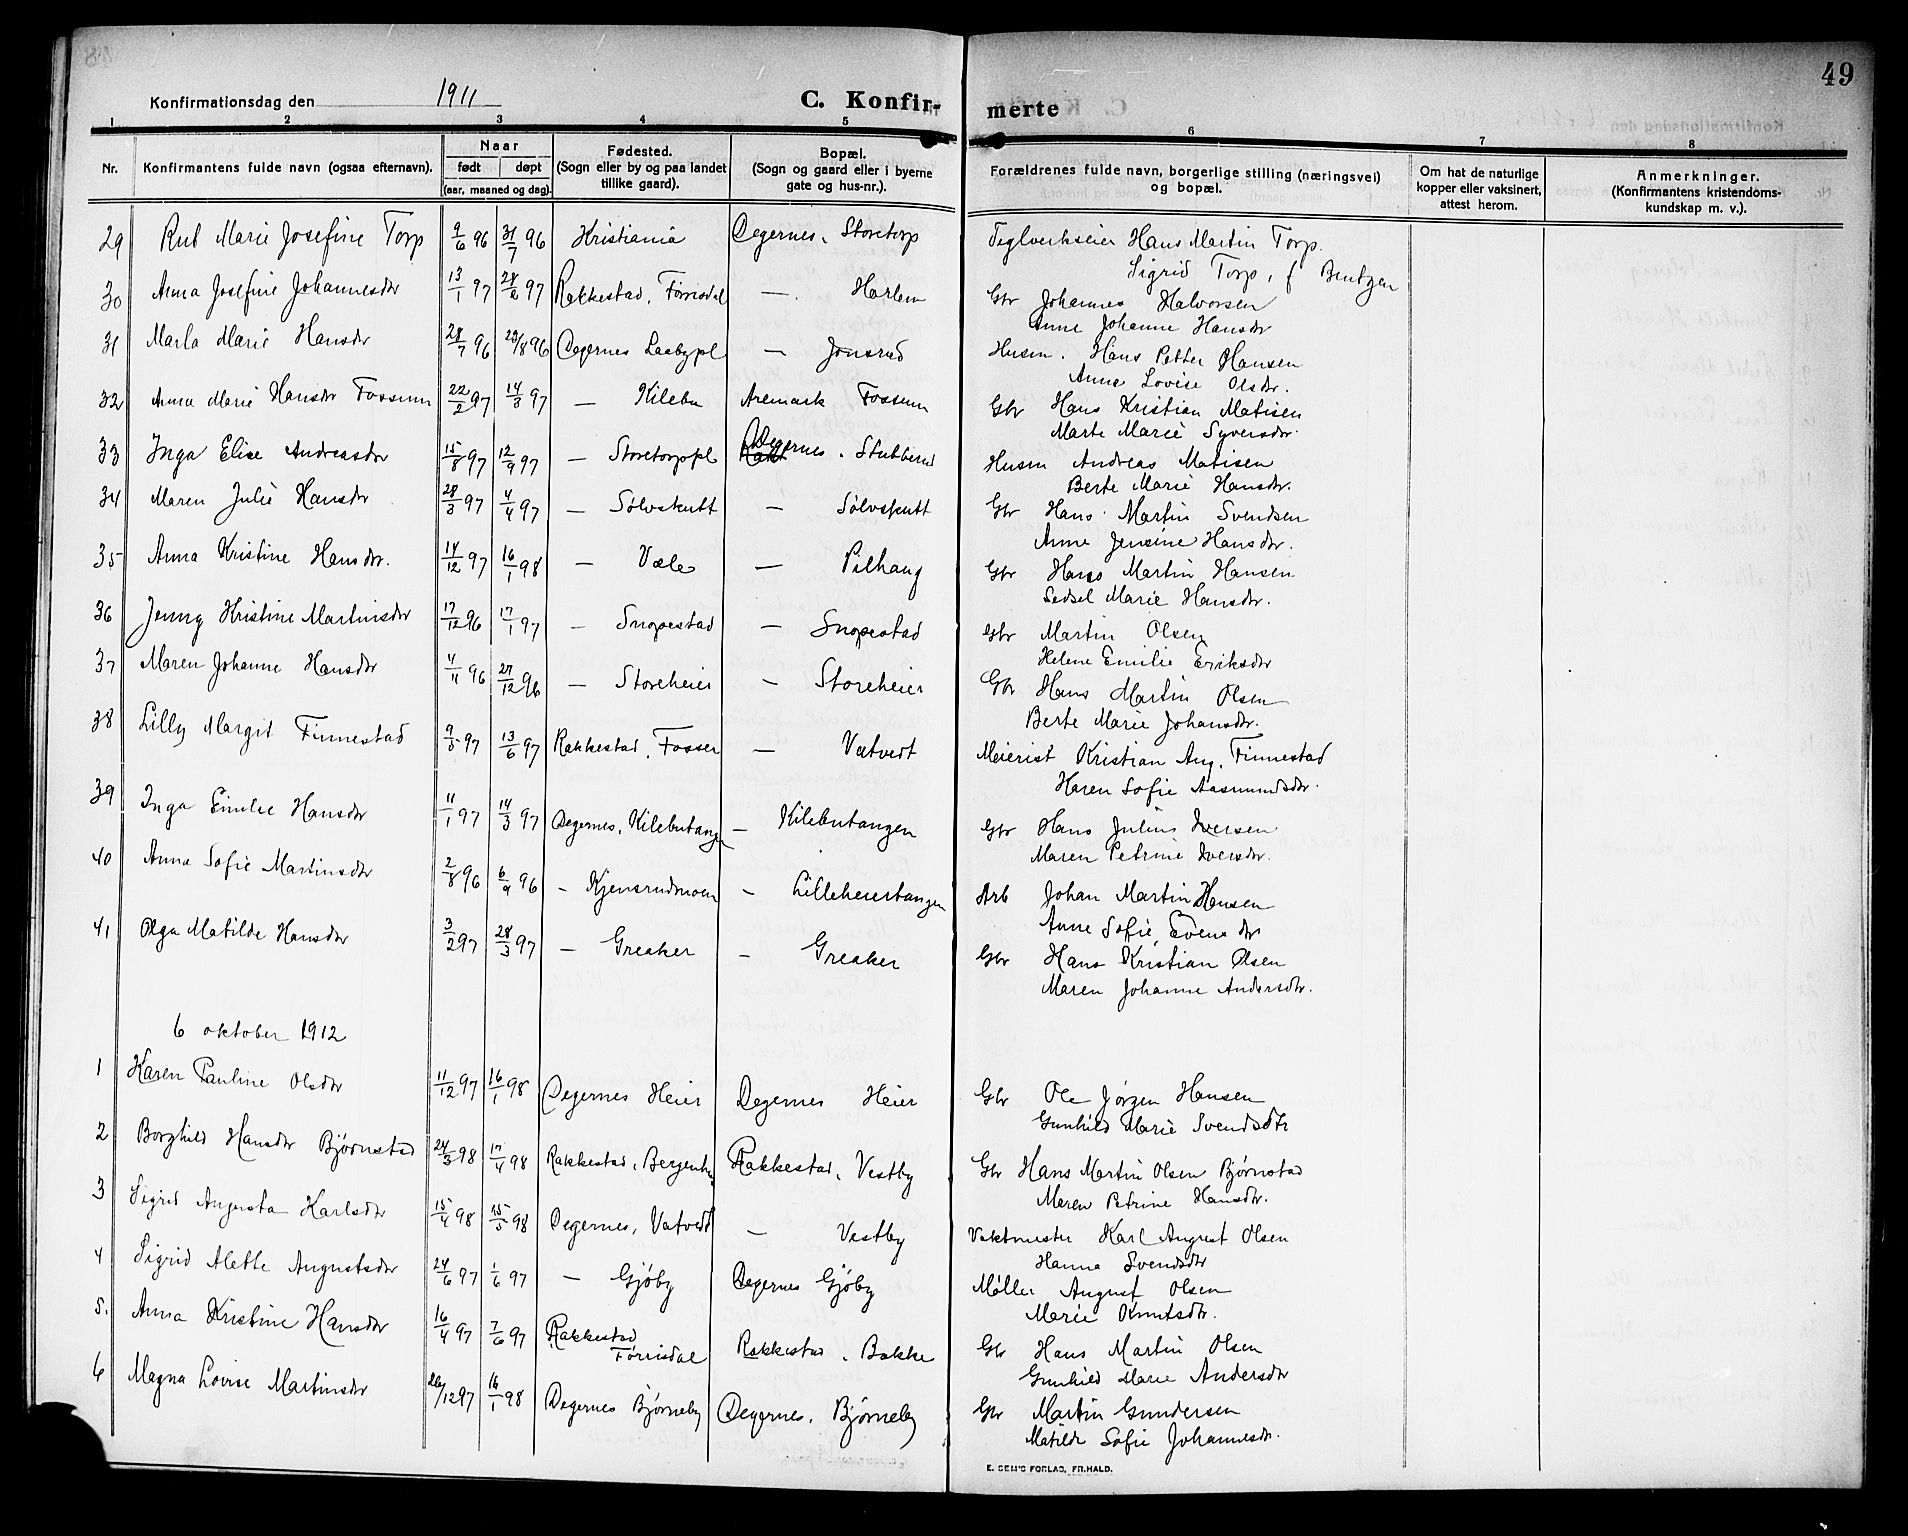 49
Konfirmationsdag den 1911
C. Konfir- merte
1 2 3 4 5 6 7 8
Nr. Konfirmantens fulde navn (ogsaa efternavn). Naar født døpt (aar, maaned og dag). Fødested. (Sogn eller by og paa landet tillike gaard). Bopæl. (Sogn og gaard eller i byerne gate og hus-nr.). Forældrenes fulde navn, borgerlige stilling (næringsvei) og bopæl. Om hat de naturlige kopper eller vaksinert, attest herom. Anmerkninger. (Konfirmantens kristendoms-kundskap m. v.).
29 Rut Marie Josefine Torp 9/6 96 31/7 96 Kristiania Degernes, Storetorp Teglverkseier Hans Martin Torp.
Sigrid Torp, f Bentzen
30 Anna Josefine Johannesdtr 13/1 97 28/2 97 Rakkestad, Førrisdal — Harlem Gbr Johannes Halvorsen
Anne Johanne Hansdtr
31 Marta Marie Hansdtr 28/7 96 23/8 96 Degernes Laebypl — Jonsrud Husm. Hans Petter Hansen
Anne Lovise Olsdtr.
32 Anna Marie Hansdtr Fossum 22/2 97 14/3 97 — Kilebu Aremark Fossum Gbr Hans Kristian Matisen
Marte Marie Syversdtr.
33 Inga Elise Andreasdtr 15/8 97 12/9 97 — Storetorppl Degernes, Stubberud Husm Andreas Matisen
Berte Marie Hansdtr.
34 Maren Julie Hansdtr 28/3 97 4/4 97 — Sølvskutt — Sølvskutt Gbr Hans Martin Svendsen
Anne Jensine Hansdtr.
35 Anna Kristine Hansdtr. 14/12 97 16/1 98 — Væle — Pilhaug Gbr Hans Martin Hansen
Sedsel Marie Hansdtr.
36 Jenny Kristine Martinsdtr 17/12 96 17/1 97 — Snopestad — Snopestad Gbr Martin Olsen
Helene Emilie Eriksdtr
37 Maren Johanne Hansdtr 4/11 96 27/12 96 — Storeheier — Storeheier Gbr Hans Martin Olsen
Berte Marie Johansdtr.
38 Lilly Margit Finnestad 9/5 97 13/6 97 Rakkestad, Fosser — Vatvedt Meierist Kristian Aug. Finnestad
Karen Sofie Aasmundsdtr.
39 Inga Emilie Hansdtr 11/1 97 14/3 97 Degernes, Kilebutangen — Kilebutangen Gbr Hans Julius Iversen
Maren Petrine Iversdtr.
40 Anna Sofie Martinsdtr 2/8 96 6/9 96 — Kjensrudmoen — Lilleheiertangen Arb Johan Martin Hansen
Anne Sofie Evensdtr
41 Olga Matilde Hansdtr 3/2 97 28/3 97 — Greaker — Greaker Gbr Hans Kristian Olsen
Maren Johanne Andersdtr.
6 oktober 1912
1 Karen Pauline Olsdtr 11/12 97 16/1 98 Degernes Heier Degernes Heier Gbr Ole Jørgen Hansen
Gunhild Marie Svendsdtr
2 Borghild Hansdtr Bjørnstad 24/3 98 17/4 98 Rakkestad, Rakkestad, Vestby Gbr Hans Martin Olsen Bjørnstad
Maren Petrine Hansdtr.
3 Sigrid Augusta Karlsdtr 15/4 98 15/5 98 Degernes, Vatvedt — Vestby Vaktmester Karl August Olsen
Hanna Svendsdtr
4 Sigrid Alette Augustsdtr 24/6 97 1/6 97 — Gjøby Degernes Gjøby Møller August Olsen
Marie Knutsdtr.
5. Anna Kristine Hansdtr 16/4 97 7/6 97 Rakkestad Førrisdal Rakkestad, Bakke Gbr Hans Martin Olsen
Gunhild Marie Andersdtr
6 Magna Lovise Martinsdtr 26/12 97 16/1 98 Degernes Bjørneby Degernes, Bjørneby Gbr Martin Gundersen
Matilde Sofie Johannesdtr.
E. SEM'S FORLAG, FR.HALD.